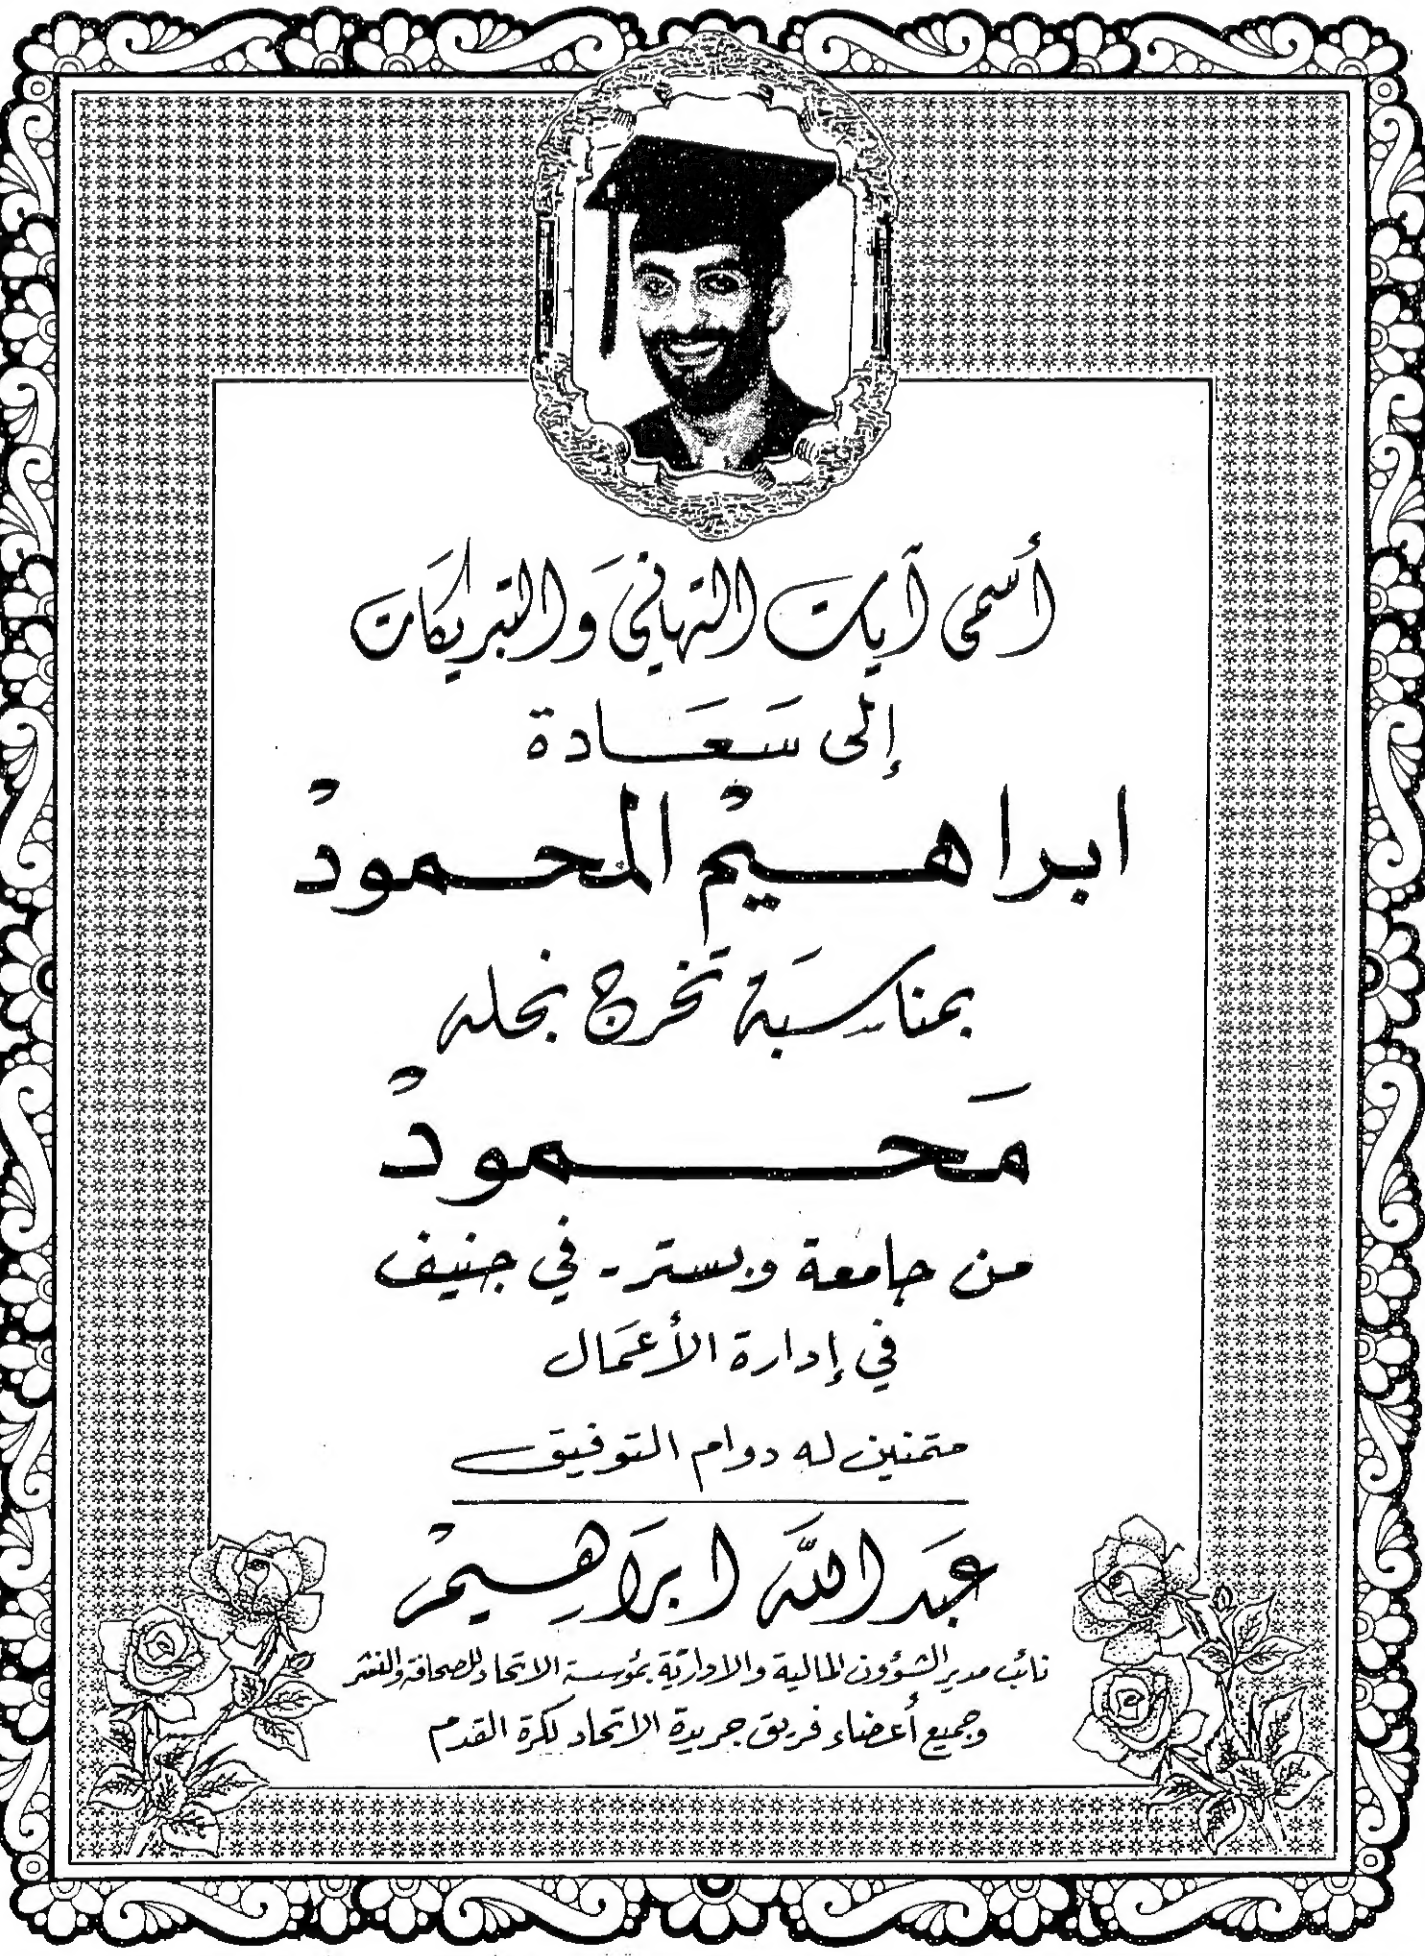 أسمى آيات التهاني والتبريكات
إلى سعادة
ابراهيم المحمود
بمناسبة تخرج نجله
محمود
من جامعة وبستر - في جنيف
في إدارة الأعمال
متمنين له دوام التوفيق
عبد الله ابراهيم
نائب مدير الشؤون المالية والادارية بمؤسسة الاتحاد للصحافة والنشر
وجميع أعضاء فريق جريدة الاتحاد لكرة القدم